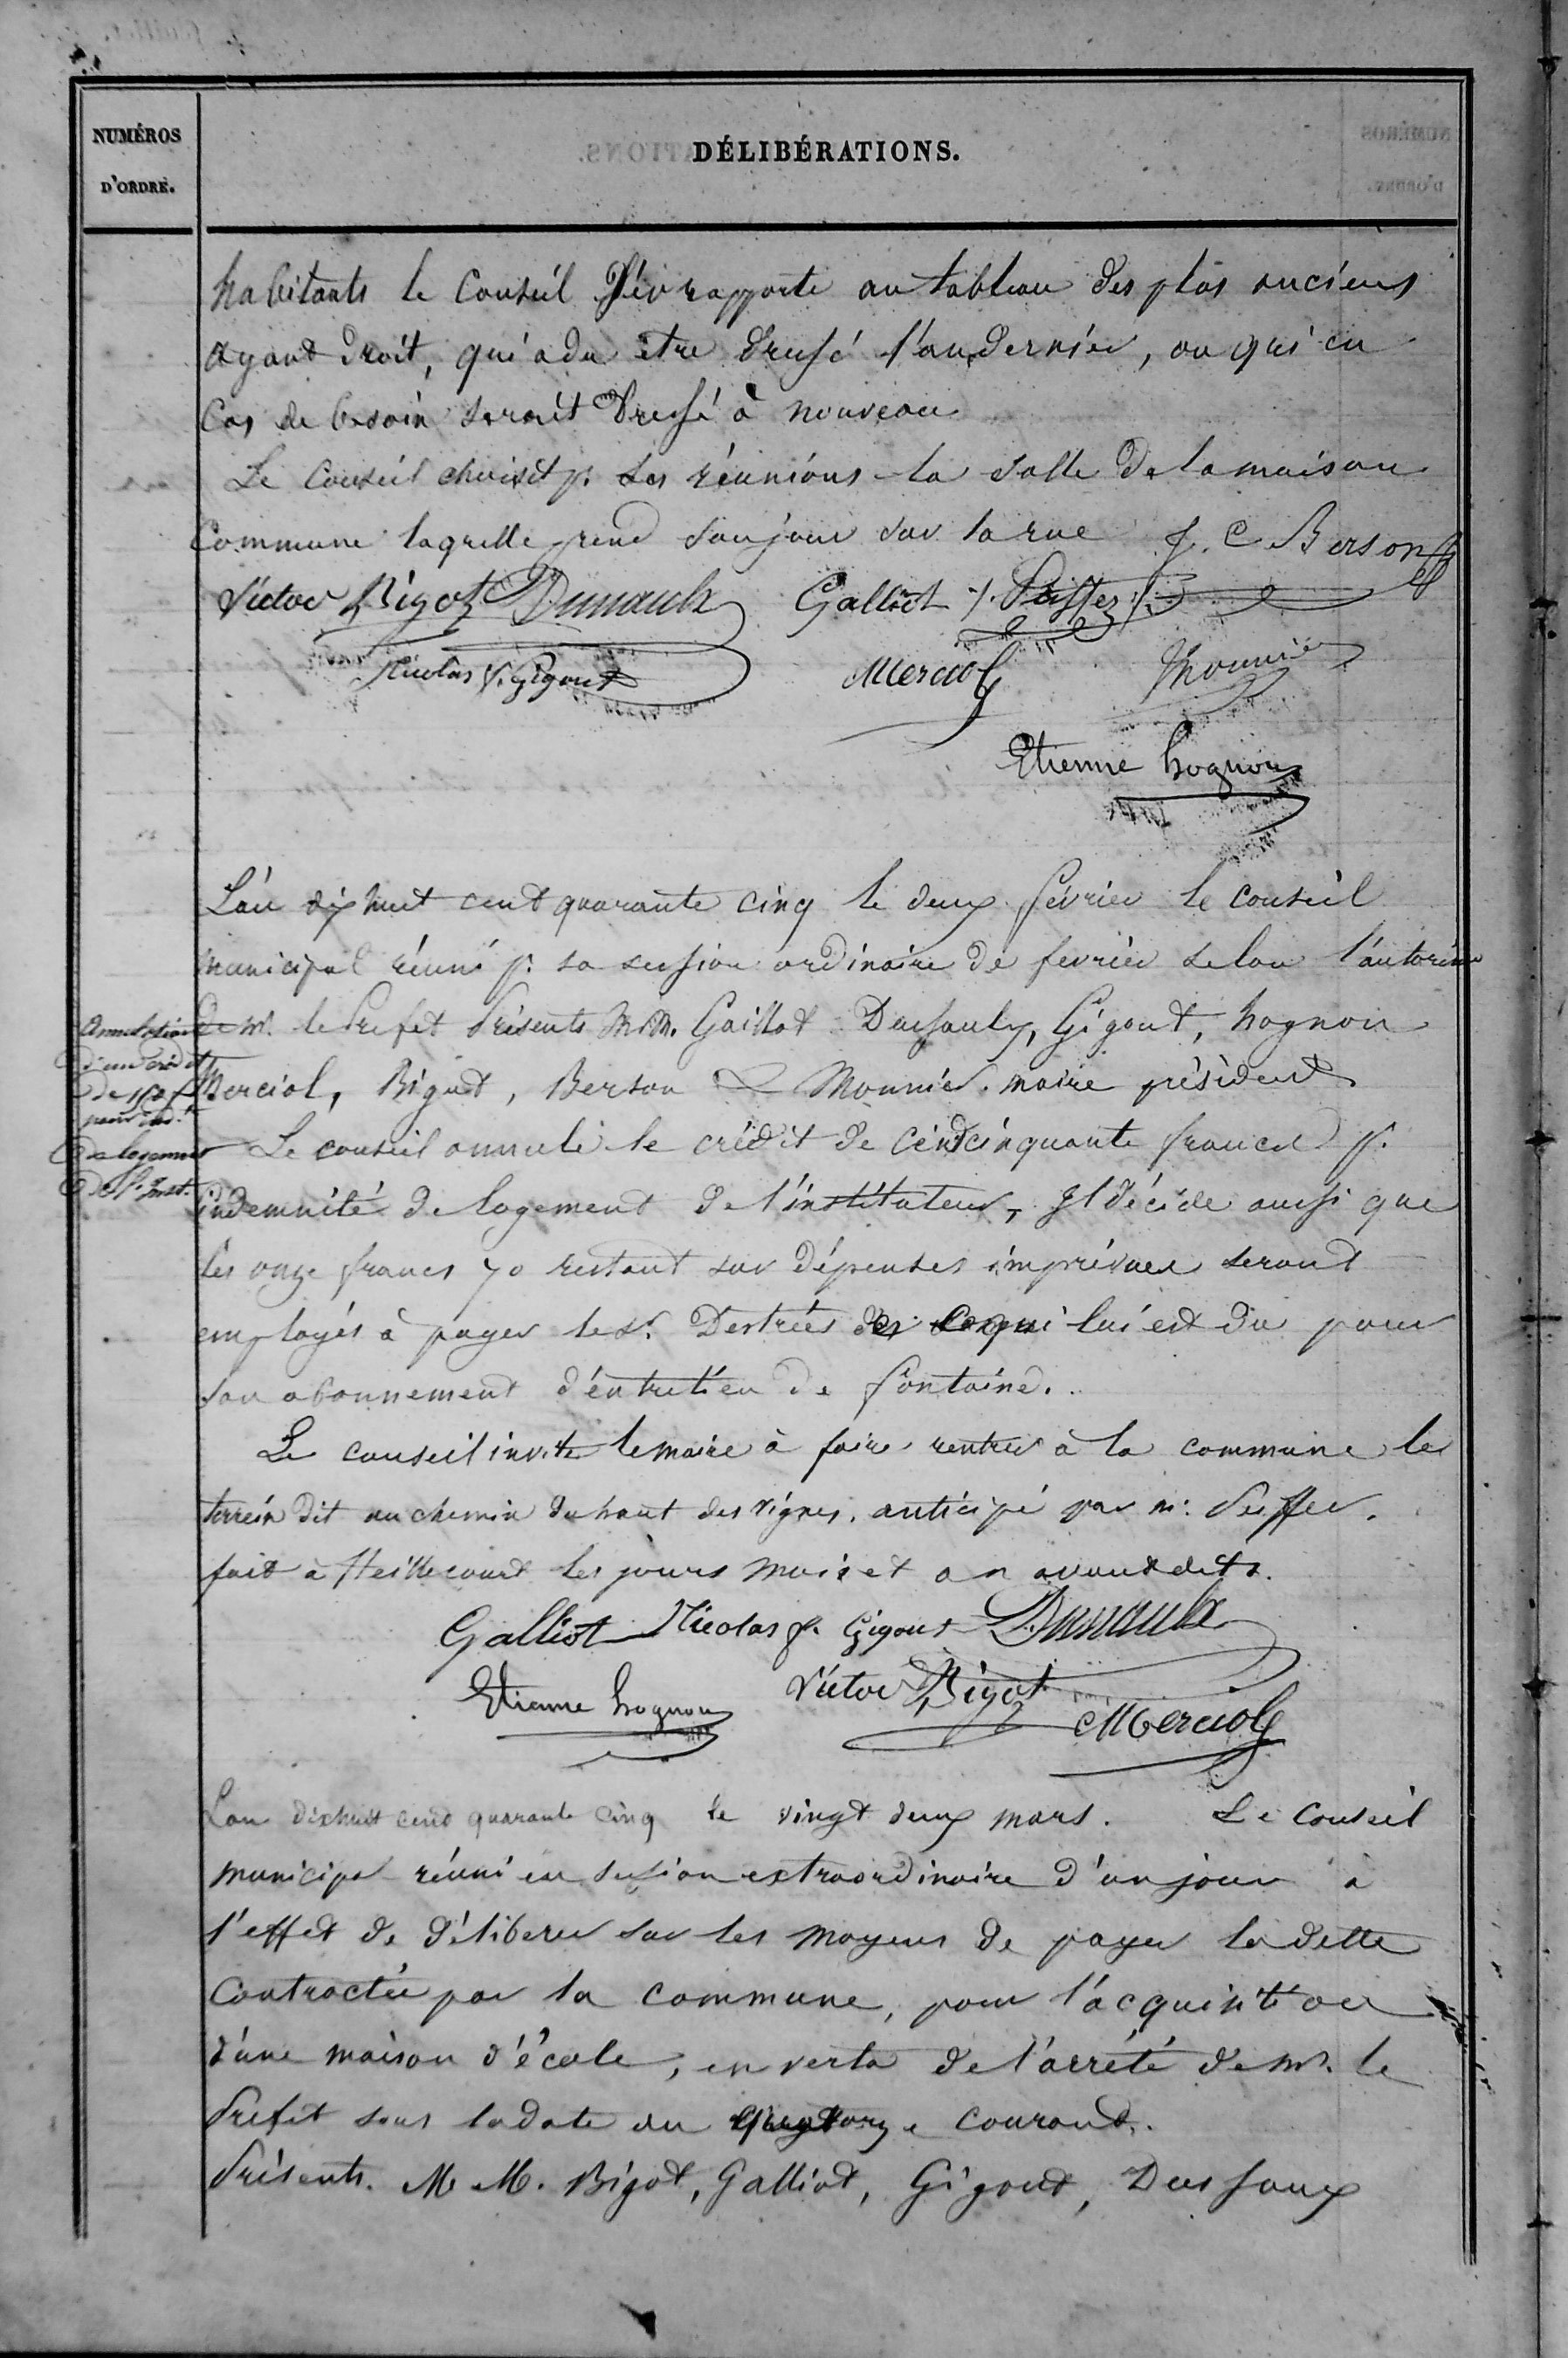 NUMÉROS
D'ORDRE.
DÉLIBÉRATIONS.
habitants le Conseil s'en rapporte au tableau des plus anciens
ayant droit, qui a du être dressé l'an dernier, ou qui en
Cas de besoin serait dressé à nouveau
Le Conseil choisit p. ses réunions la salle de la maison
Commune laquelle prend son jour sur la rue J. C Berson
Victor Bigot Dussaulx Galliot Seiffer
Nicolas f. Gigout Merciol Mounier
Etienne hognon
L'an dix huit cent quarante cinq le deux février le conseil
municipal réuni p. sa session ordinaire de fevrier selon
de Mr. le Prefet Présents MM. Gaillot Dussaulx, Gigout, hognon
Merciol, Bigot, Berson & Mounier maire président
Annulation
d'un crédit
de 150 f
pour ind.
de logement
de l'Inst.
Le conseil annule le crédit de Cent cinquante francs p.
indemnité de logement de l'instituteur, Il décide aussi que
les onze francs 70 restant sur dépenses imprévues seront
employés à payer le Sr. Destrées ce qui lui est du pour
son abonnement d'entretien de fontaine.
Le conseil invite le maire à faire rentrer à la commune le
terrein dit au chemin du haut des vignes, anticipé par m. Seiffer.
fait à Heillecourt les jours mois et an avant dits.
Galliot Nicolas f. Gigout Dussaulx
Etienne hognon Victor Bigot Merciol
L'an dixhuit cent quarante cinq le vingt deux mars. Le Conseil
municipal réuni en session extraordinaire d'un jour à
l'effet de déliberer sur les moyens de payer la dette
Contractée par la commune, pour l'acquisition
d'une maison d'école, en vertu de l'arrêté de Mr. le
Prefet sous la date du courant.
Présents. M M. Bigot, Galliot, Gigout, Dussaux